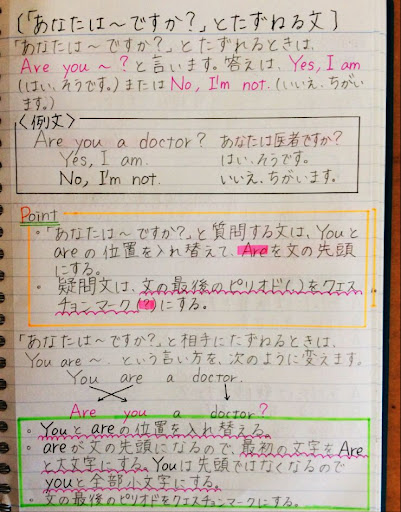 (「あなたは〜ですか?」とたずねる文)
「あなたは〜ですか?」とたずねるときは、
Are you 〜 ? と言います。答えは、Yes, I am
(はい、そうです。)または No, I'm not. (いいえ、ちがい
ます。)
〈例文〉
Are you a doctor? あなたは医者ですか?
Yes, I am. はい、そうです。
No, I'm not. いいえ、ちがいます。
Point
・「あなたは〜ですか?」と質問する文は、Youと
areの位置を入れ替えて、Areを文の先頭
にする。
・疑問文は、文の最後のピリオド(.)をクエス
チョンマーク(?)にする。
「あなたは〜ですか?」と相手にたずねるときは、
You are 〜. という言い方を、次のように変えます。
You are a doctor.
Are you a doctor?
・Youとareの位置を入れ替える。
・areが文の先頭になるので、最初の文字をAre
と大文字にする。Youは先頭ではなくなるので
youと全部小文字にする。
・文の最後のピリオドをクエスチョンマークにする。